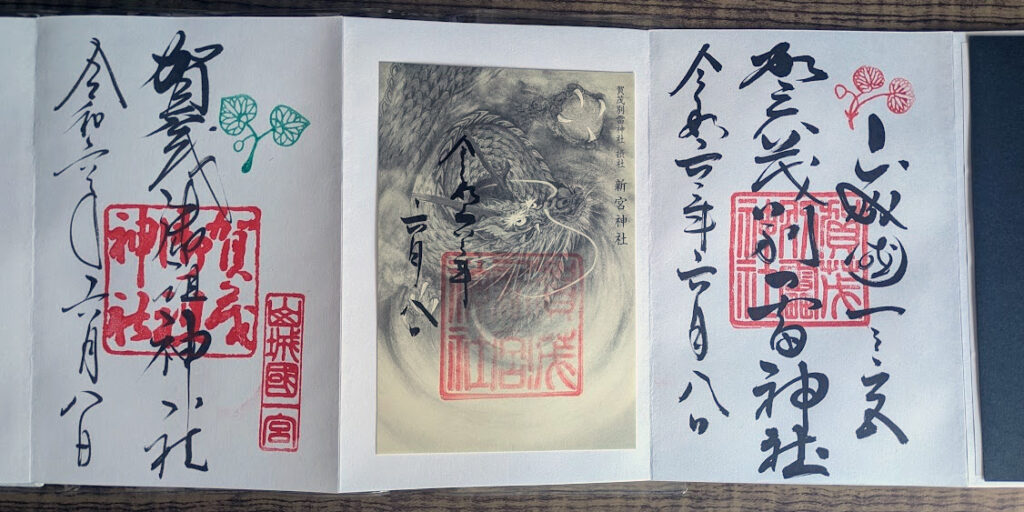 山城國一之宮
賀茂別雷神社
賀茂
別雷
神社
令和六年六月八日
賀茂別雷神社 摂社 新宮神社
令和六年
六月八日
山城國一宮
賀茂御祖神社
賀茂
御祖
神社
令和六年六月八日